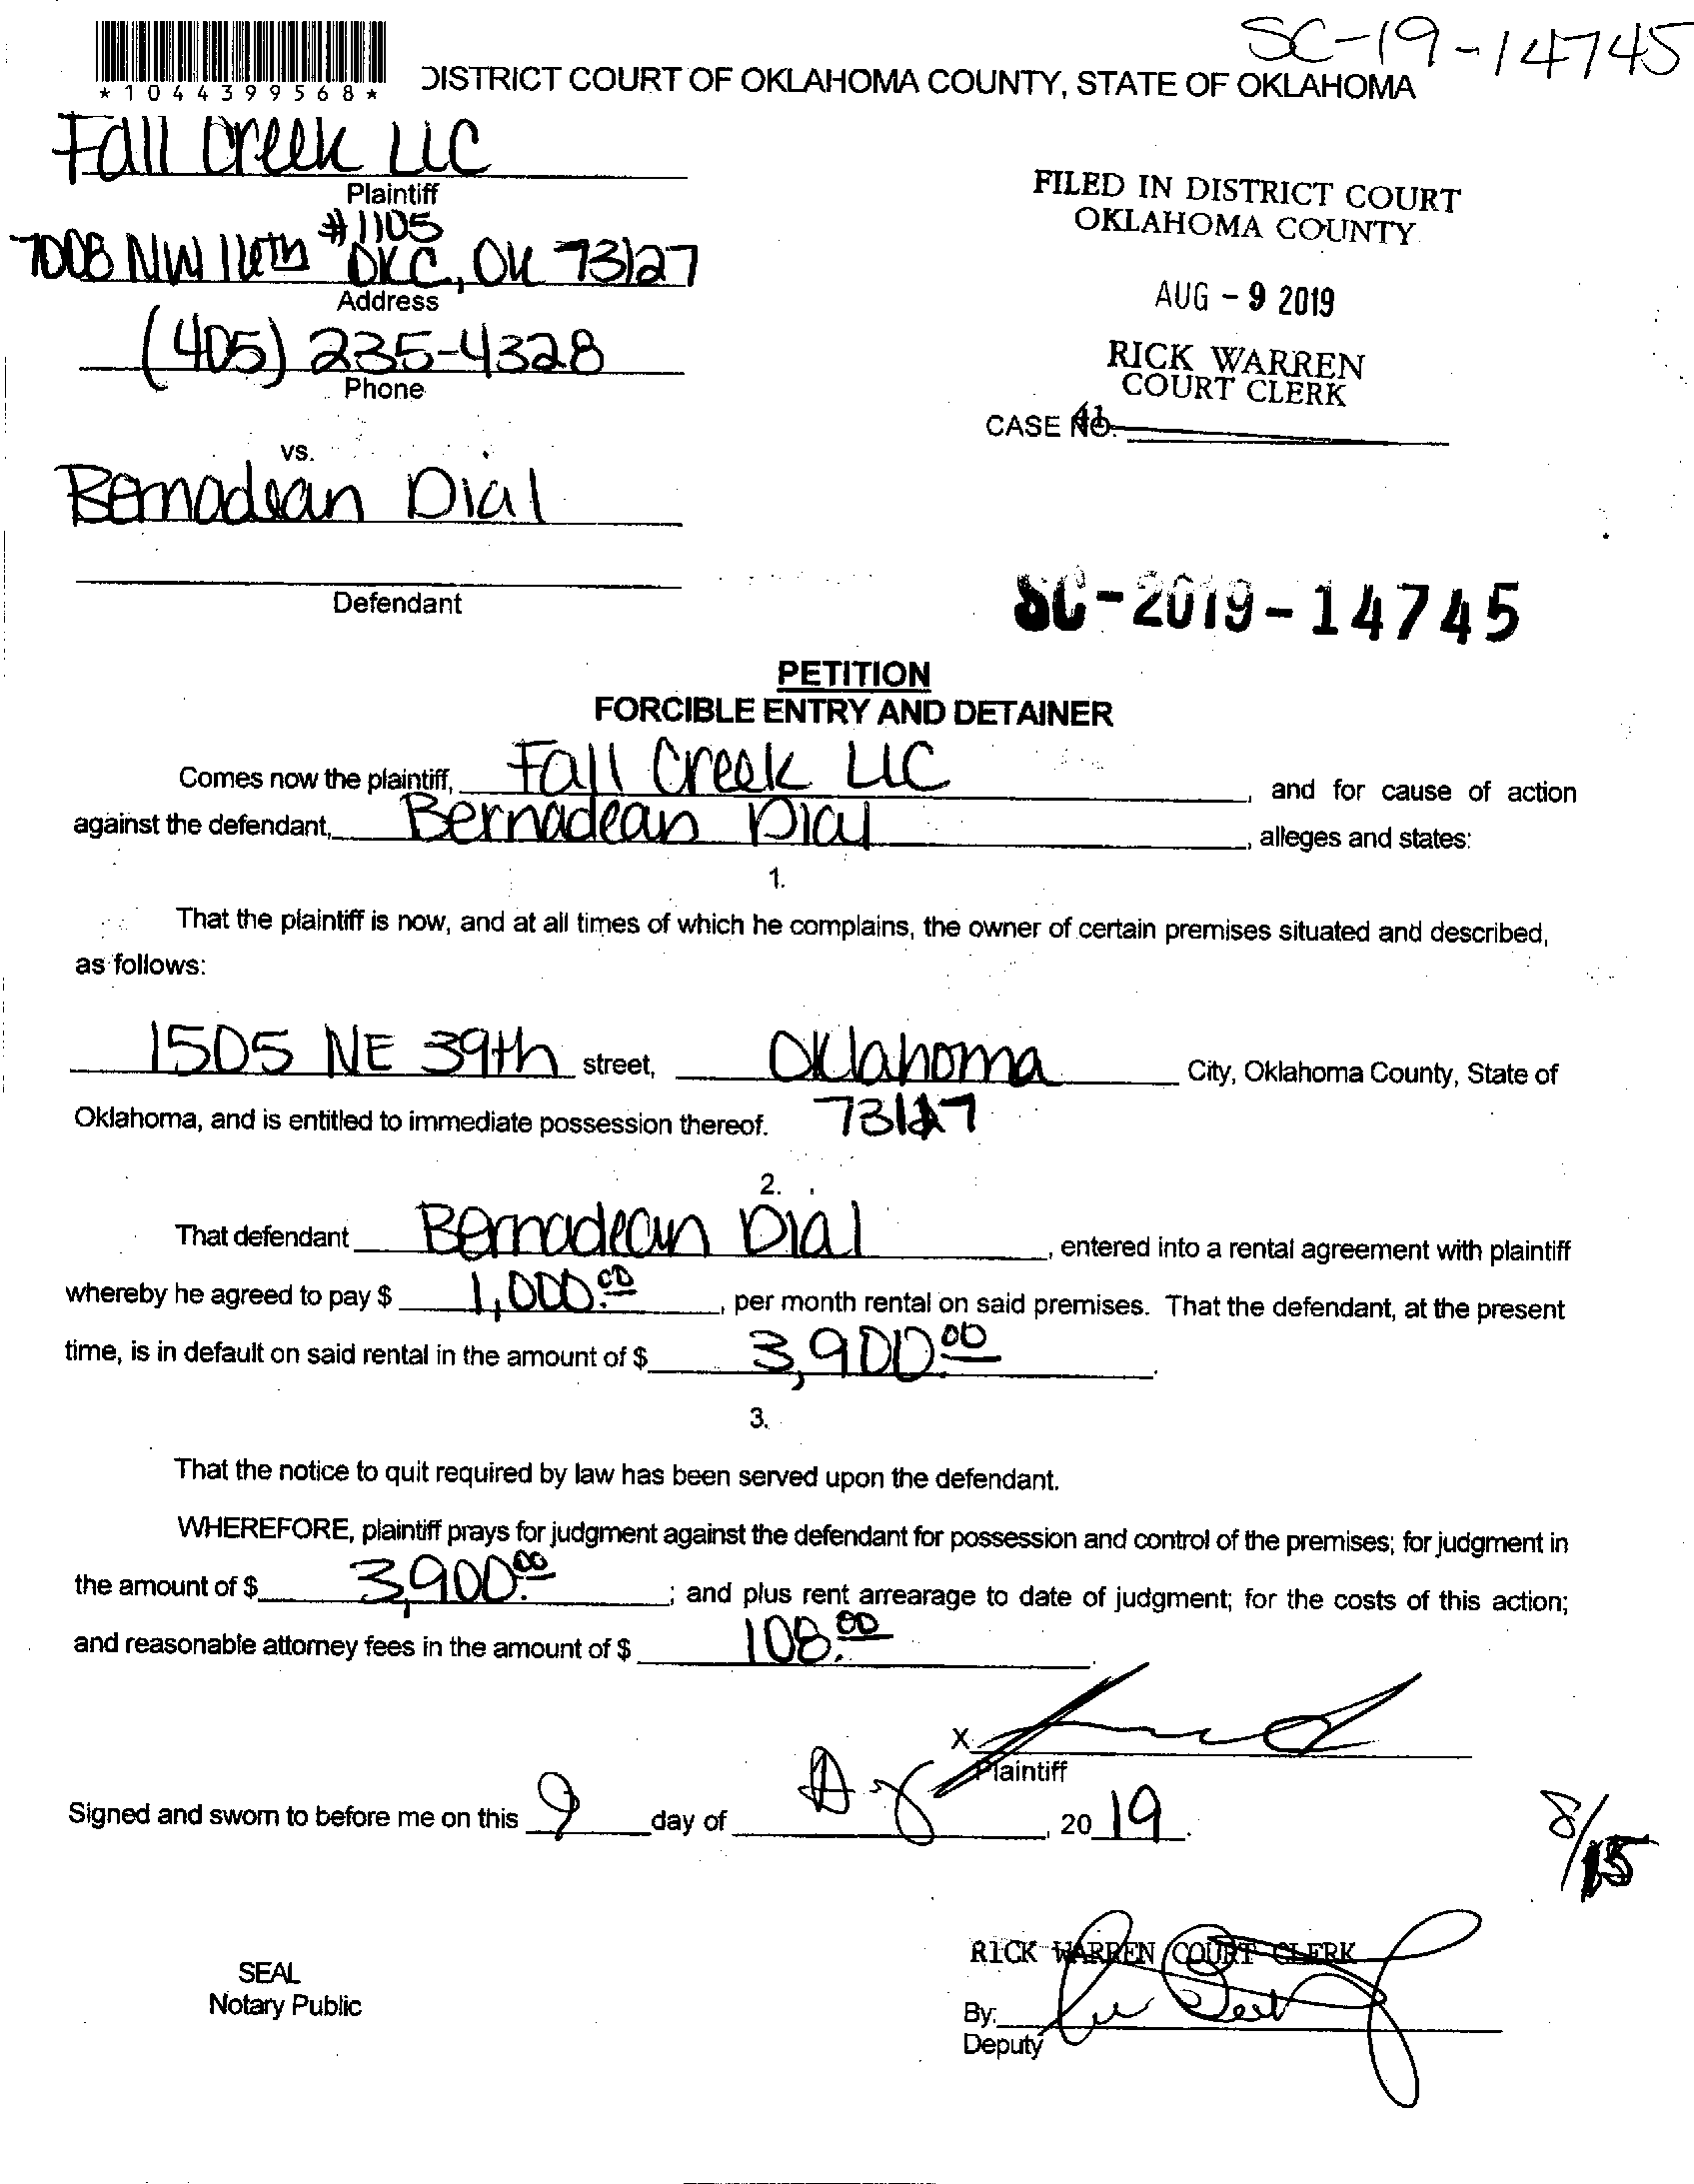 SC-19-14745
*1044399568*
DISTRICT COURT OF OKLAHOMA COUNTY, STATE OF OKLAHOMA
Fall Creek LLC
Plaintiff
#1105
7008 NW 16th OKC, OK 73127
Address
(405) 235-4328
Phone
FILED IN DISTRICT COURT
OKLAHOMA COUNTY
AUG - 9 2019
RICK WARREN
COURT CLERK
41
CASE NO.
vs.
Bernadean Dial
Defendant
SC-2019-14745
PETITION
FORCIBLE ENTRY AND DETAINER
Comes now the plaintiff, Fall Creek LLC, and for cause of action
against the defendant, Bernadean Dial, alleges and states:
1.
That the plaintiff is now, and at all times of which he complains, the owner of certain premises situated and described,
as follows:
1505 NE 39th street, Oklahoma City, Oklahoma County, State of
Oklahoma, and is entitled to immediate possession thereof. 73127
2.
That defendant Bernadean Dial, entered into a rental agreement with plaintiff
whereby he agreed to pay $ 1,000.00, per month rental on said premises. That the defendant, at the present
time, is in default on said rental in the amount of $ 3,900.00.
3.
That the notice to quit required by law has been served upon the defendant.
WHEREFORE, plaintiff prays for judgment against the defendant for possession and control of the premises; for judgment in
the amount of $ 3,900.00; and plus rent arrearage to date of judgment; for the costs of this action;
and reasonable attorney fees in the amount of $ 108.00.
X
Plaintiff
Signed and sworn to before me on this 9 day of Aug, 2019.
8/15
SEAL
Notary Public
RICK WARREN COURT CLERK
By:
Deputy